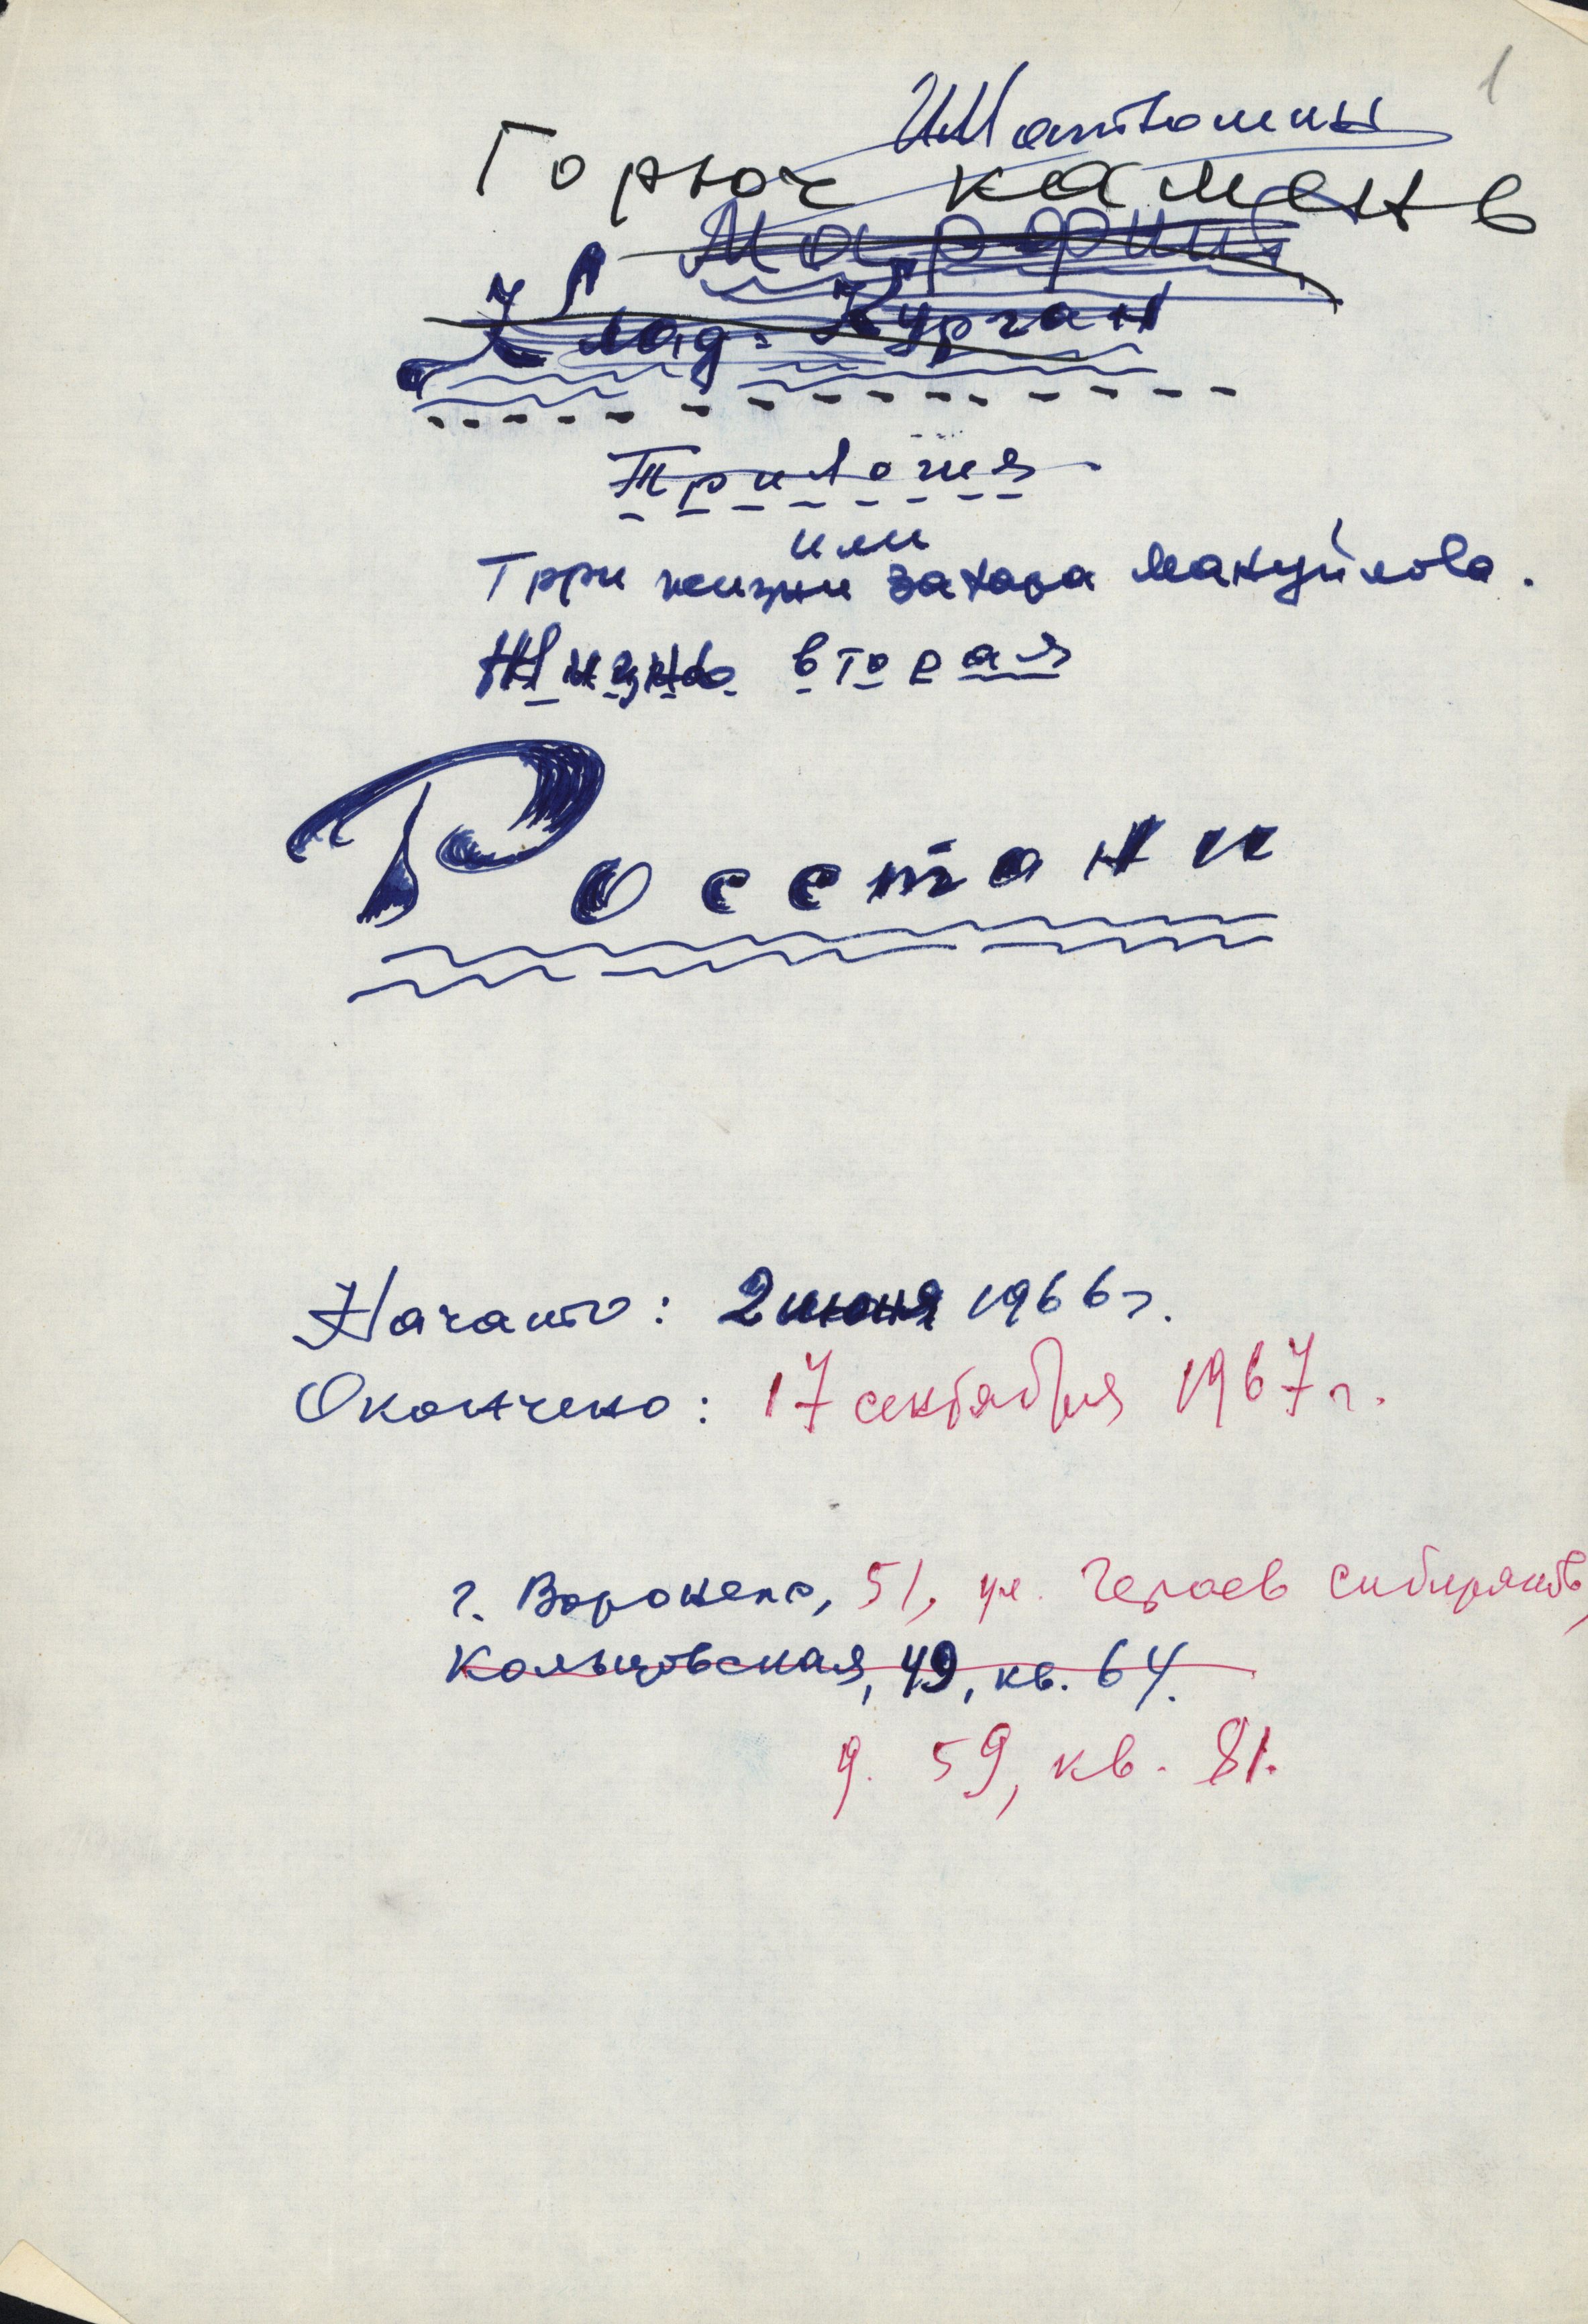 1
Горюч камень
Клад-Курган
Трилогия
или
Трри жизни Захара Мануйлова.
Жизнь вторая
Росстани
Начато: 2 июня 1966 г.
Окончено: 17 сентября 1967 г.
г. Воронеж, 51, ул. Героев сибиряков,
Кольцовская, 49, кв. 64.
д. 59, кв. 81.